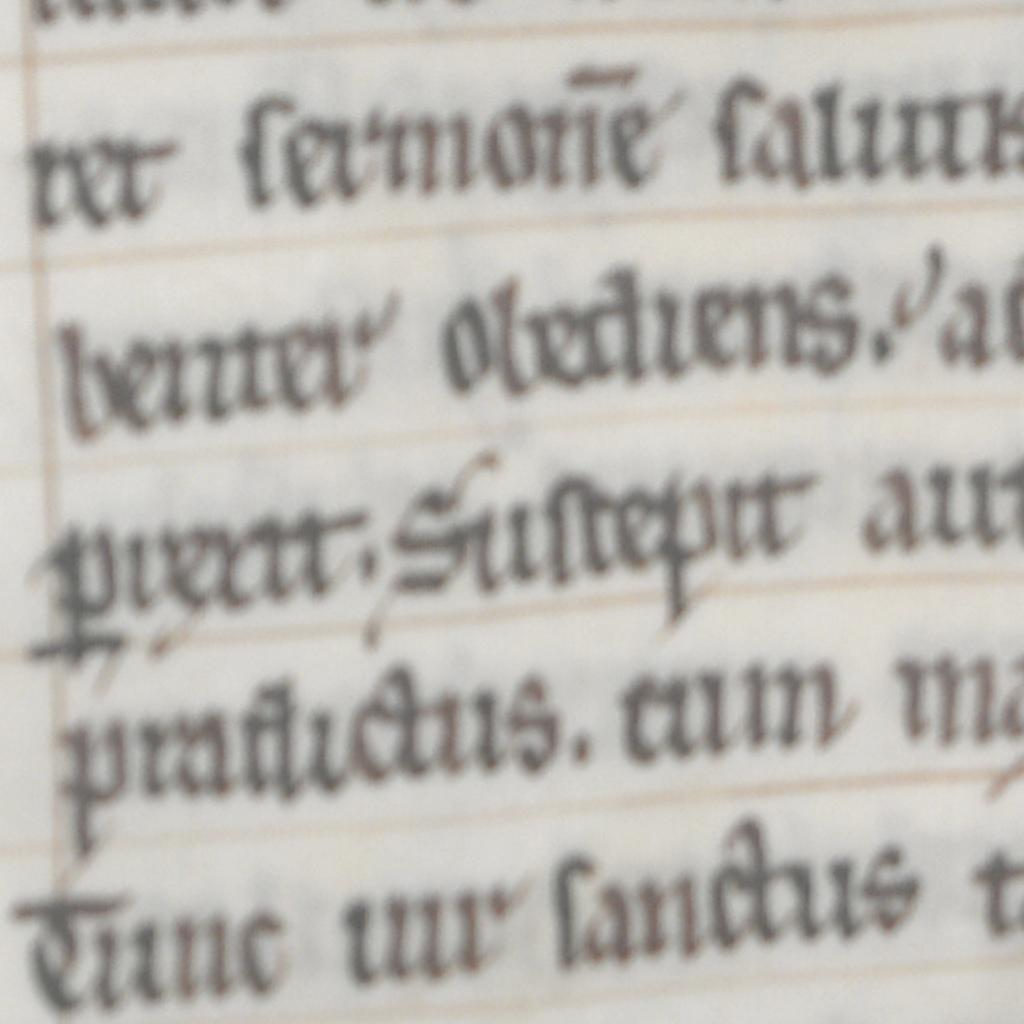 ret sermonē salutis
benter obediens. a
ꝑrexit. Suscepit aut
praedictus. cum ma
Tunc uir sanctus t